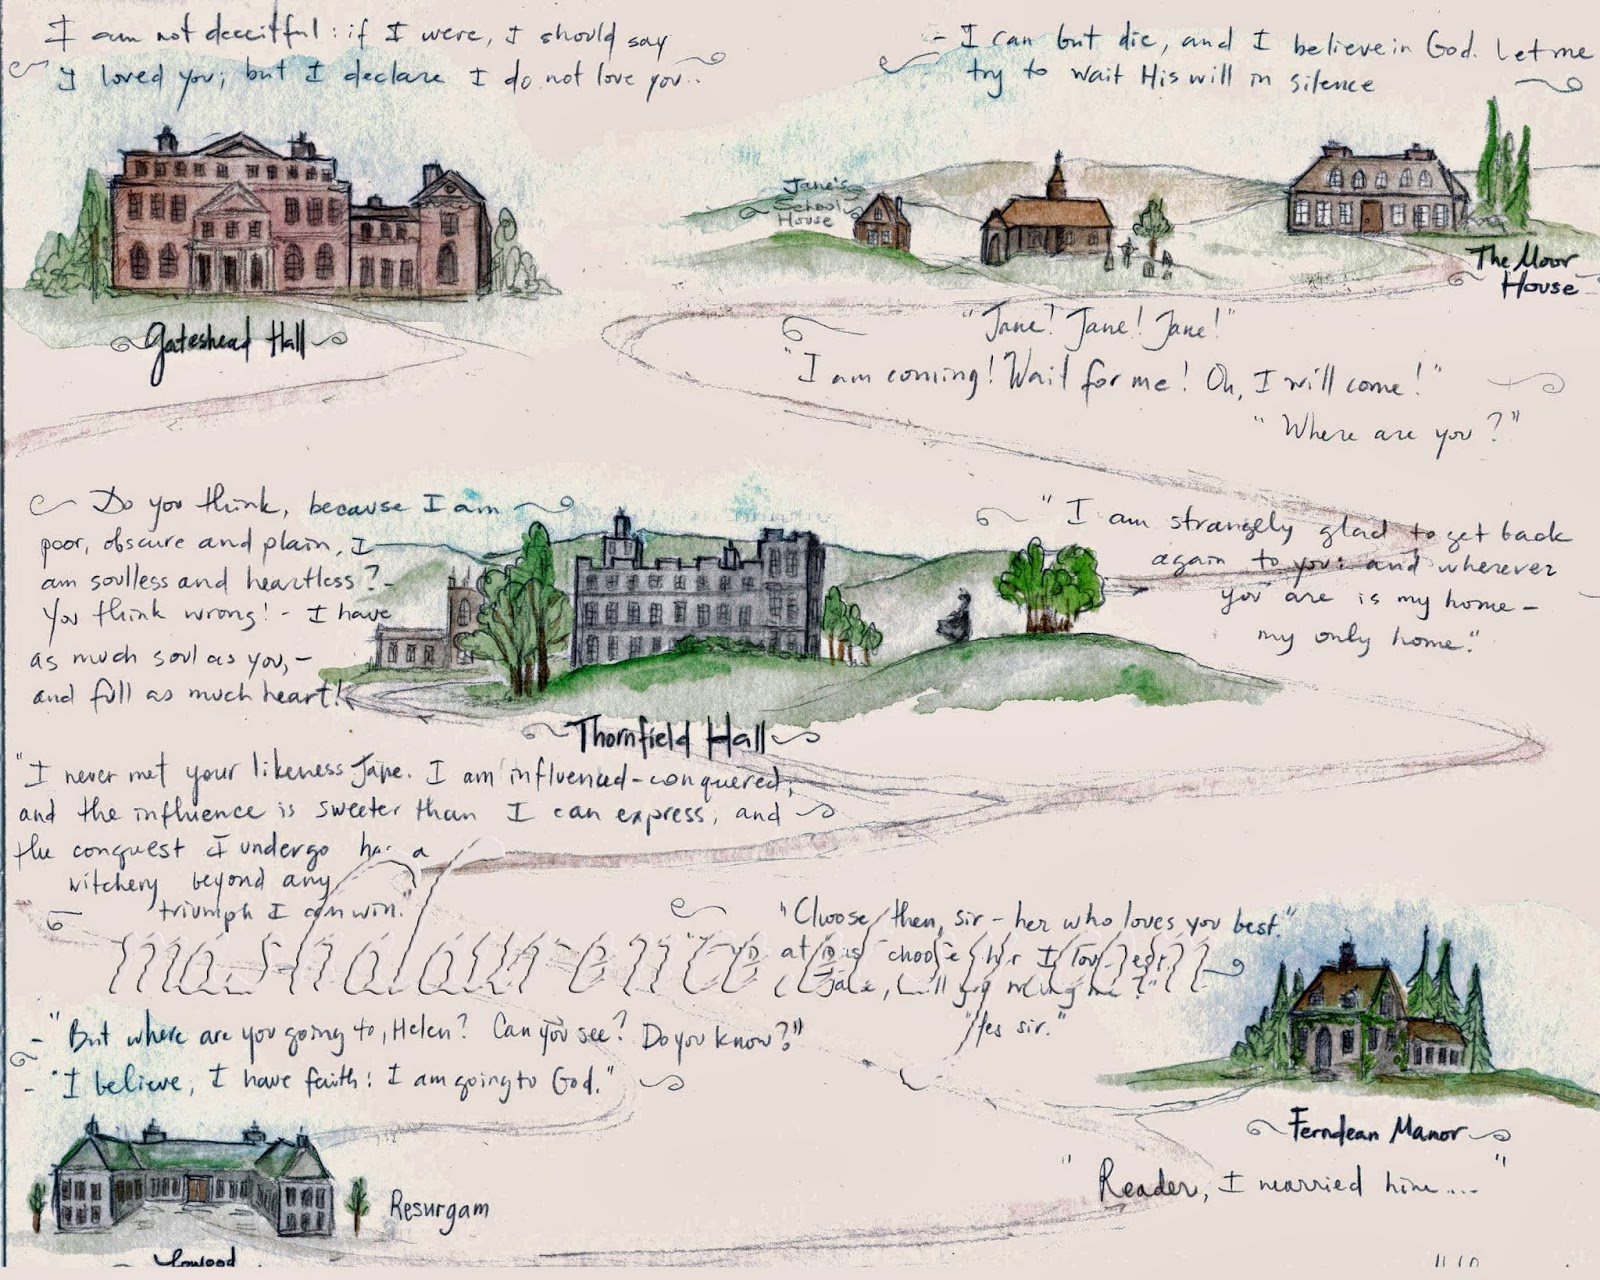 I am not deceitful: if I were, I should say
I loved you; but I declare I do not love you..
- I can but die, and I believe in God. Let me
try to wait His will in silence
Jane's
School
House
The Moor
House
Gateshead Hall
"Jane! Jane! Jane!"
"I am coming! Wait for me! Oh, I will come!"
"Where are you?"
Do you think, because I am
poor, obscure and plain, I
am soulless and heartless? -
You think wrong! - I have
as much soul as you, -
and full as much heart!
"I am strangely glad to get back
again to you: and wherever
you are is my home -
my only home."
Thornfield Hall
"I never met your likeness Jane. I am influenced - conquered;
and the influence is sweeter than I can express; and
the conquest I undergo has a
witchery beyond any
triumph I can win."
"Choose then, sir - her who loves you best."
choose her I love best
Jane, will you marry me?"
"Yes sir."
- "But where are you going to, Helen? Can you see? Do you know?"
- "I believe, I have faith: I am going to God."
Ferndean Manor
"Reader, I married him...."
Resurgam
Lowood